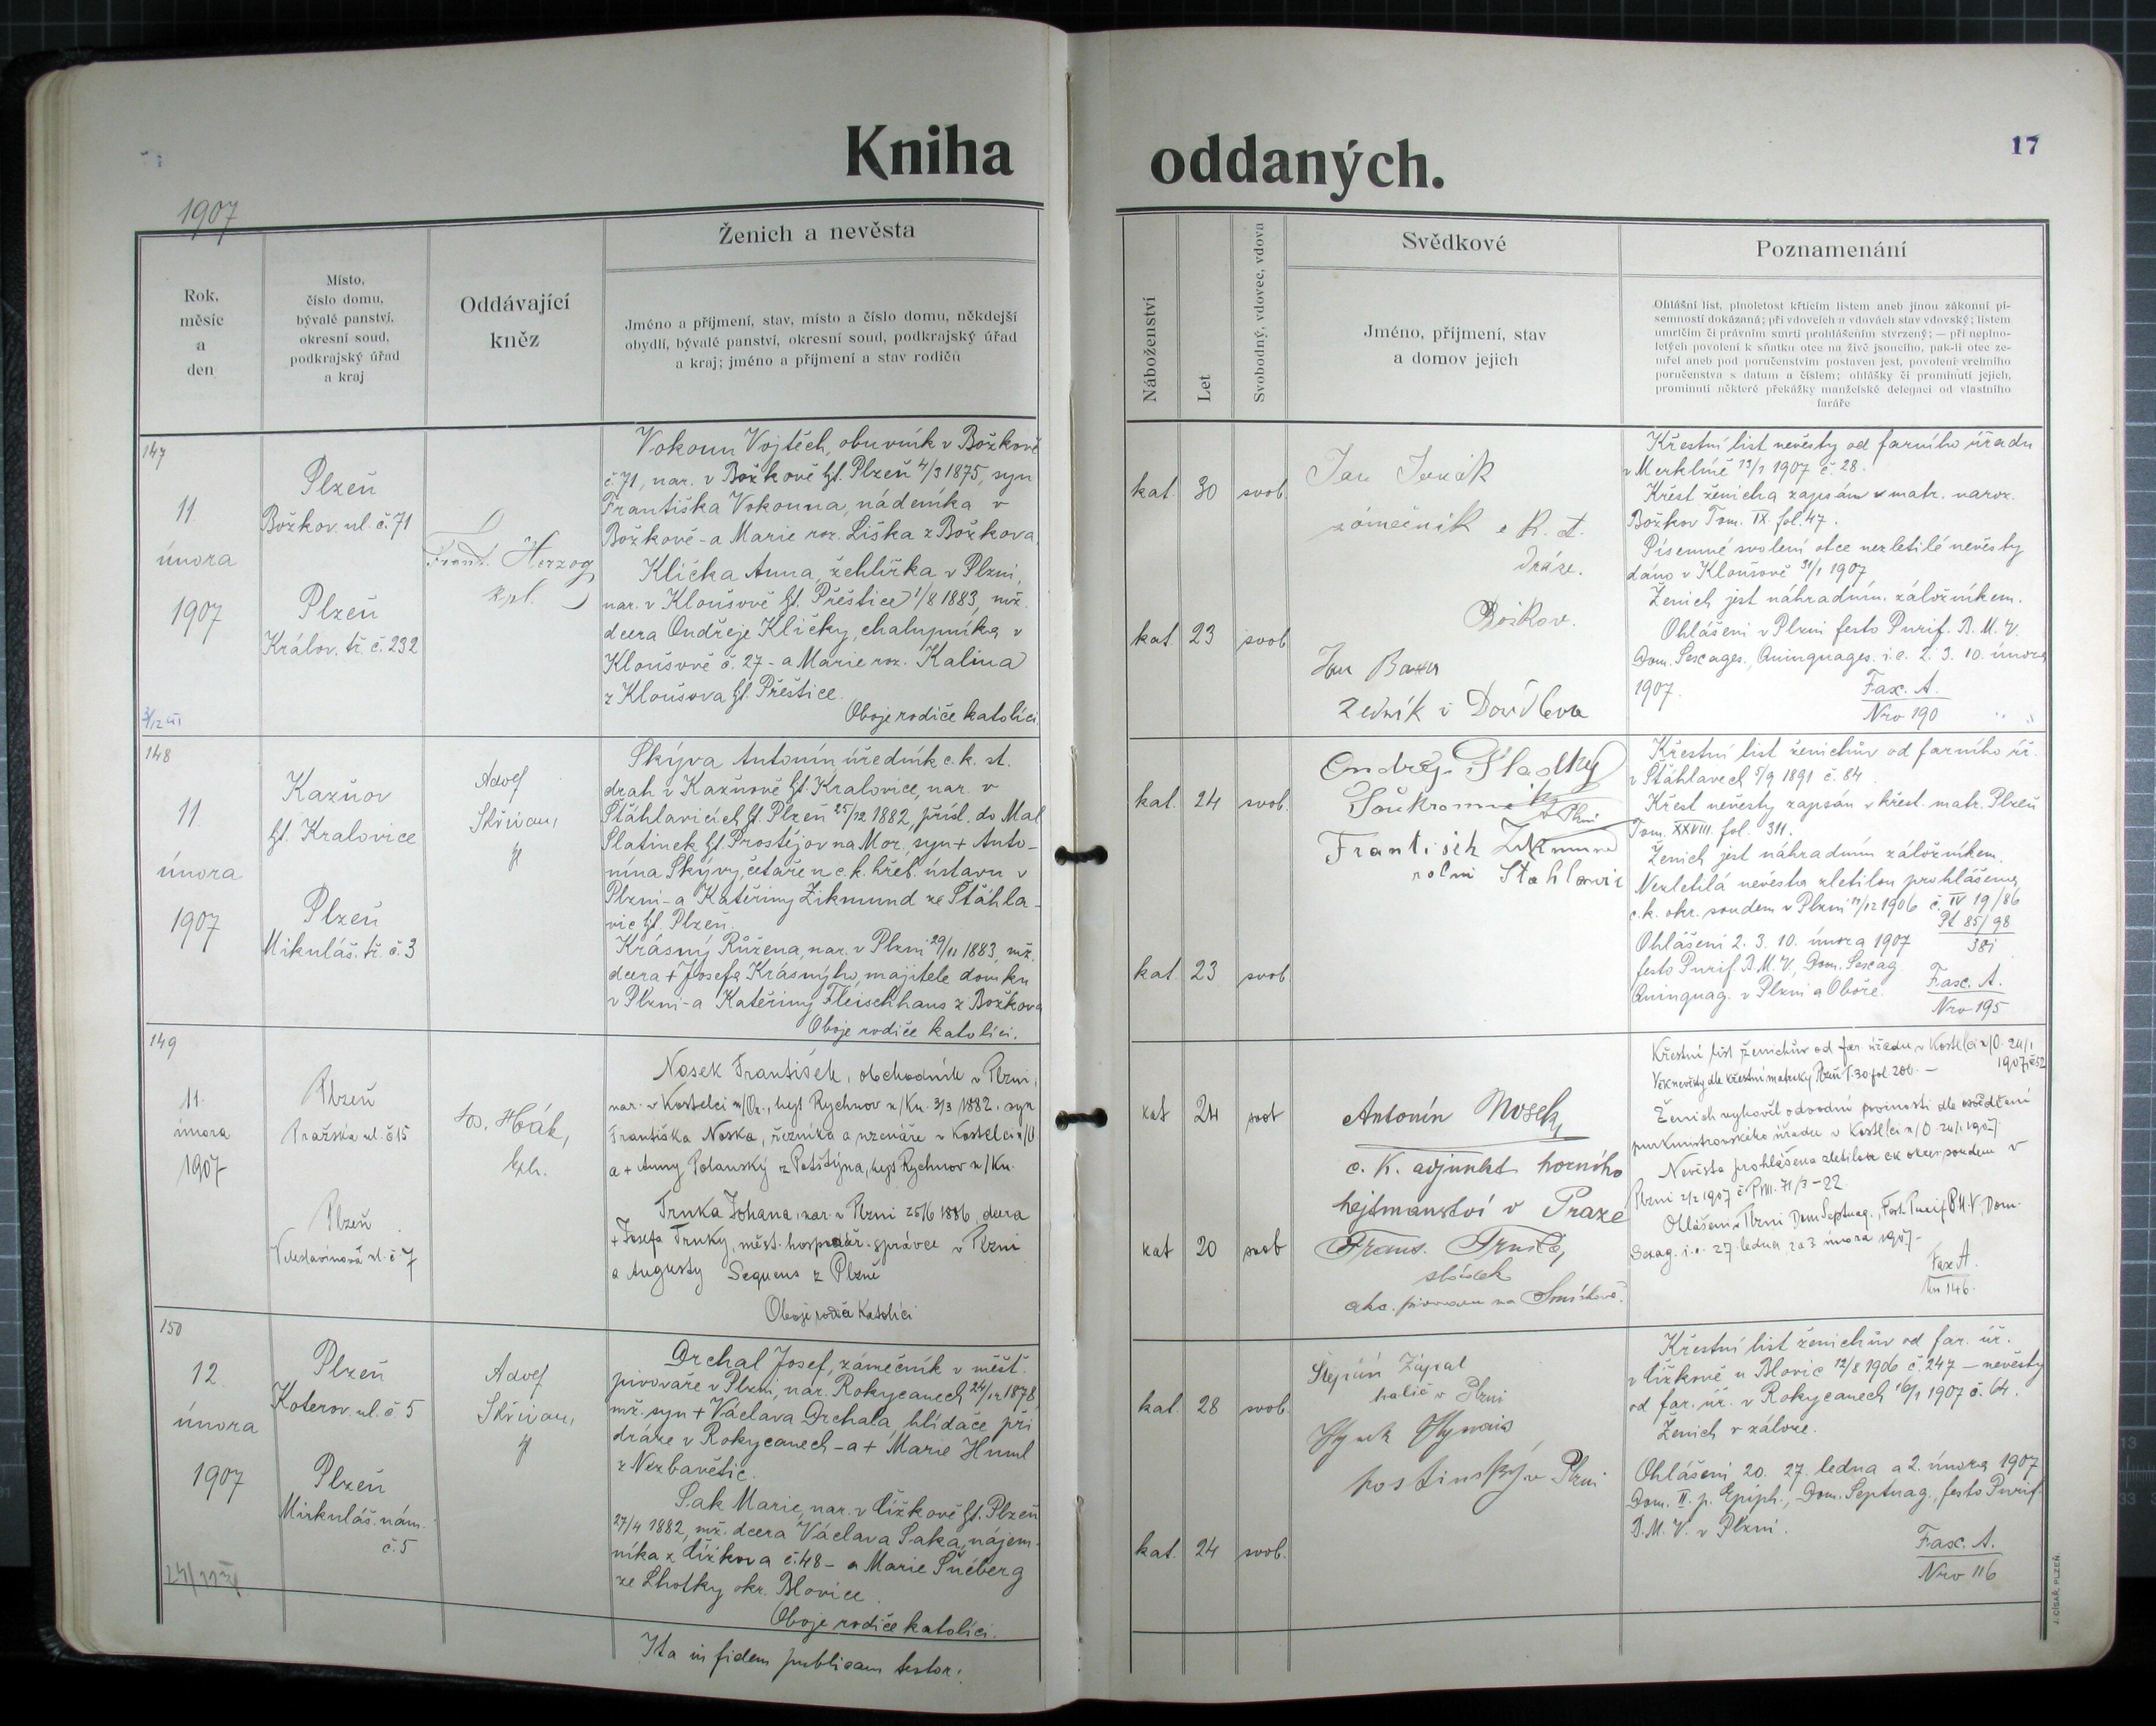 Kniha oddaných.
17
1907
Rok,
měsíc
a
den
Místo,
číslo domu,
bývalé panství,
okresní soud,
podkrajský úřad
a kraj
Oddávající
kněz
Ženich a nevěsta
Jméno a příjmení, stav, místo a číslo domu, někdejší
obydlí, bývalé panství, okresní soud, podkrajský úřad
a kraj; jméno a příjmení a stav rodičů
Náboženství
Let
Svobodný, vdovec, vdova
Svědkové
Jméno, přijmení, stav
a domov jejich
Poznamenání
Ohlášní list, plnoletost křticím listem aneb jinou zákonní pí-
semností dokázaná; při vdovcích a vdovách stav vdovský; listem
umrlčím či právním smrti prohlášením stvrzený; — při neplno-
letých povolení k sňatku otce na živě jsoucího, pak-li otec ze-
mřel aneb pod poručenstvím postaven jest, povolení vrchního
poručenstva s datum a číslem; ohlášky či prominutí jejich,
prominutí některé překážky manželské delegací od vlastního
faráře
147
11.
února
1907
Plzeň
Božkov. ul. č. 71
Plzeň
Králov. tř. č. 232
Frant. Herzog
kpl.
Vokoun Vojtěch, obuvník v Božkově
č. 71, nar. v Božkově hf. Plzeň 4/3 1875, syn
Františka Vokouna, nádeníka v
Božkově - a Marie roz. Liška z Božkova.
Klička Anna, žehlířka v Plzni,
nar. v Kloušově hf. Přeštice 1/8 1883, mž.
dcera Ondřeje Kličky, chalupníka v
Kloušově č. 27 - a Marie roz. Kalina
z Kloušova hf. Přeštice.
Oboje rodiče katolíci.
kat. 30 svob.
kat. 23 svob.
Jan
zámečník
dráze.
Božkov.
Jan
Zedník
Křestní list nevěsty od farního úřadu
v Merklíně 1907 č. 28.
Křest ženicha zapsán v matr. naroz.
Božkov Tom. IX. fol. 47.
Písemné svolení otce nezletilé nevěsty
dáno v Kloušově 31/1 1907
Ženich jest náhradním. záložníkem.
Ohlášeni v Plzni festo Purif. B. M. V.
Dom. Sexages., Quinquages. i. e. 2. 3. 10. února
1907.
Fasc. A.
Nro 190
148
11.
února
1907
Kažňov
hf. Kralovice
Plzeň
Mikuláš. tř. č. 3
Adolf
Skřivan,
Skýva Antonín úředník c. k. st.
drah v Kažňově hf. Kralovice, nar. v
Štáhlavicích hf. Plzeň 25/12 1882, přísl. do Mal.
Slatinek hf. Prostějov na Mor., syn + Anto-
nína Skývy, četaře u c. k. hřeb. ústavu v
Plzni - a Kateřiny Zikmund ze Štáhla-
vic hf. Plzeň.
Krásný Růžena, nar. v Plzni 29/11 1883, mž.
dcera + Josefa Krásnýho, majitele domku
v Plzni - a Kateřiny Fleischhans z Božkova
Oboje rodiče katolíci.
kat. 24 svob.
kat. 23 svob.
Ondřej Sladký
Soukromník
v Plzni
František Zikmund
rolní Štahlavic
Křestní list ženichův od farního úř.
v Štáhlavech 5/9 1891 č. 84.
Křest nevěsty zapsán v křest. matr. Plzeň
Tom. XXVIII. fol. 311.
Ženich jest náhradním záložníkem.
Nezletilá nevěsta zletilou prohlášena
c. k. okr. soudem v Plzni 1906 č. IV 19/86
Pl 85/98
Ohlášeni 2. 3. 10. února 1907
festo Purif. B. M. V., Dom. Sexag
Quinquag. v Plzni a Oboře.
Fasc. A.
Nro 195
149
11.
února
1907
Plzeň
Pražská ul. č 15
Plzeň
Veleslavínova ul. č 7
Jos. Hák,
kpl.
Nosek František, obchodník v Plzni,
nar. v Kostelci n/Or., hejt Rychnov n/Kn. 3/3 1882. syn
Františka Noska, řezníka a uzenáře v Kostelci n/O
a + Anny Polanský z Potštýna, hejt Rychnov n/Kn.
Trnka Johana, nar. v Plzni 25/6 1886, dcera
+ Josefa Trnky, měst. hospodář. správce v Plzni
a Augusty Sequens z Plzně
Oboje rodiče Katolíci
kat 24 svob
kat 20 svob
Antonín Nosek,
c. K. adjunkt horního
hejtmanství v Praze
Frant. Trnka,
sládek
akc. pivovaru na Smíchově.
Křestní list ženichův od far. úřadu v Kostelci n/O. 24/1
1907 č 52
Věk nevěsty dle křestní matriky Plzeň T. 30 fol 206. —
Ženich vyhověl odvodní povinnosti dle osvědčení
purkmistrovského úřadu v Kostelci n/O 24/1 1907
Nevěsta prohlášena zletilou ck okres soudem v
Plzni 2/2 1907
Ohlášeni v Plzni Dom Septuag., Fest. Purif B.M.V, Dom.
Sexag. i. e. 27. ledna, 2 a 3 února 1907.
Fasc A.
Nro 146.
150
12.
února
1907
Plzeň
Koterov. ul. č. 5
Plzeň
Mikuláš. nám.
č. 5
Adolf
Skřivan,
Drchal Josef, zámečník v měšť.
pivováře v Plzni, nar. Rokycanech 24/12 1878,
mž. syn + Václava Drchala, hlídače při
dráze v Rokycanech - a + Marie Huml
z Nezbavětic.
Sak Marie, nar. v Čížkově hf. Plzeň
27/4 1882, mž. dcera Václava Saka, nájem-
níka z Čížkova č. 48 - a Marie Šnéberg
ze Lhotky okr. Blovice.
Oboje rodiče katolíci.
kat. 28 svob.
kat. 24 svob.
Štěpán Zápal
halíř v Plzni
Hynek
hostinský v Plzni
Křestní list ženichův od far. úř.
v Čížkově u Blovic 12/8 1906 č. 247 — nevěsty
od far. úř. v Rokycanech 1907 č. 64.
Ženich v záloze.
Ohlášeni 20. 27. ledna a 2. února 1907
Dom. II. p. Epiph., Dom. Septuag., festo Purif.
B. M. V. v Plzni.
Fasc. A.
Nro 116
Ita in fidem publicam testor:
J. CÍSAŘ, PLZEŇ.